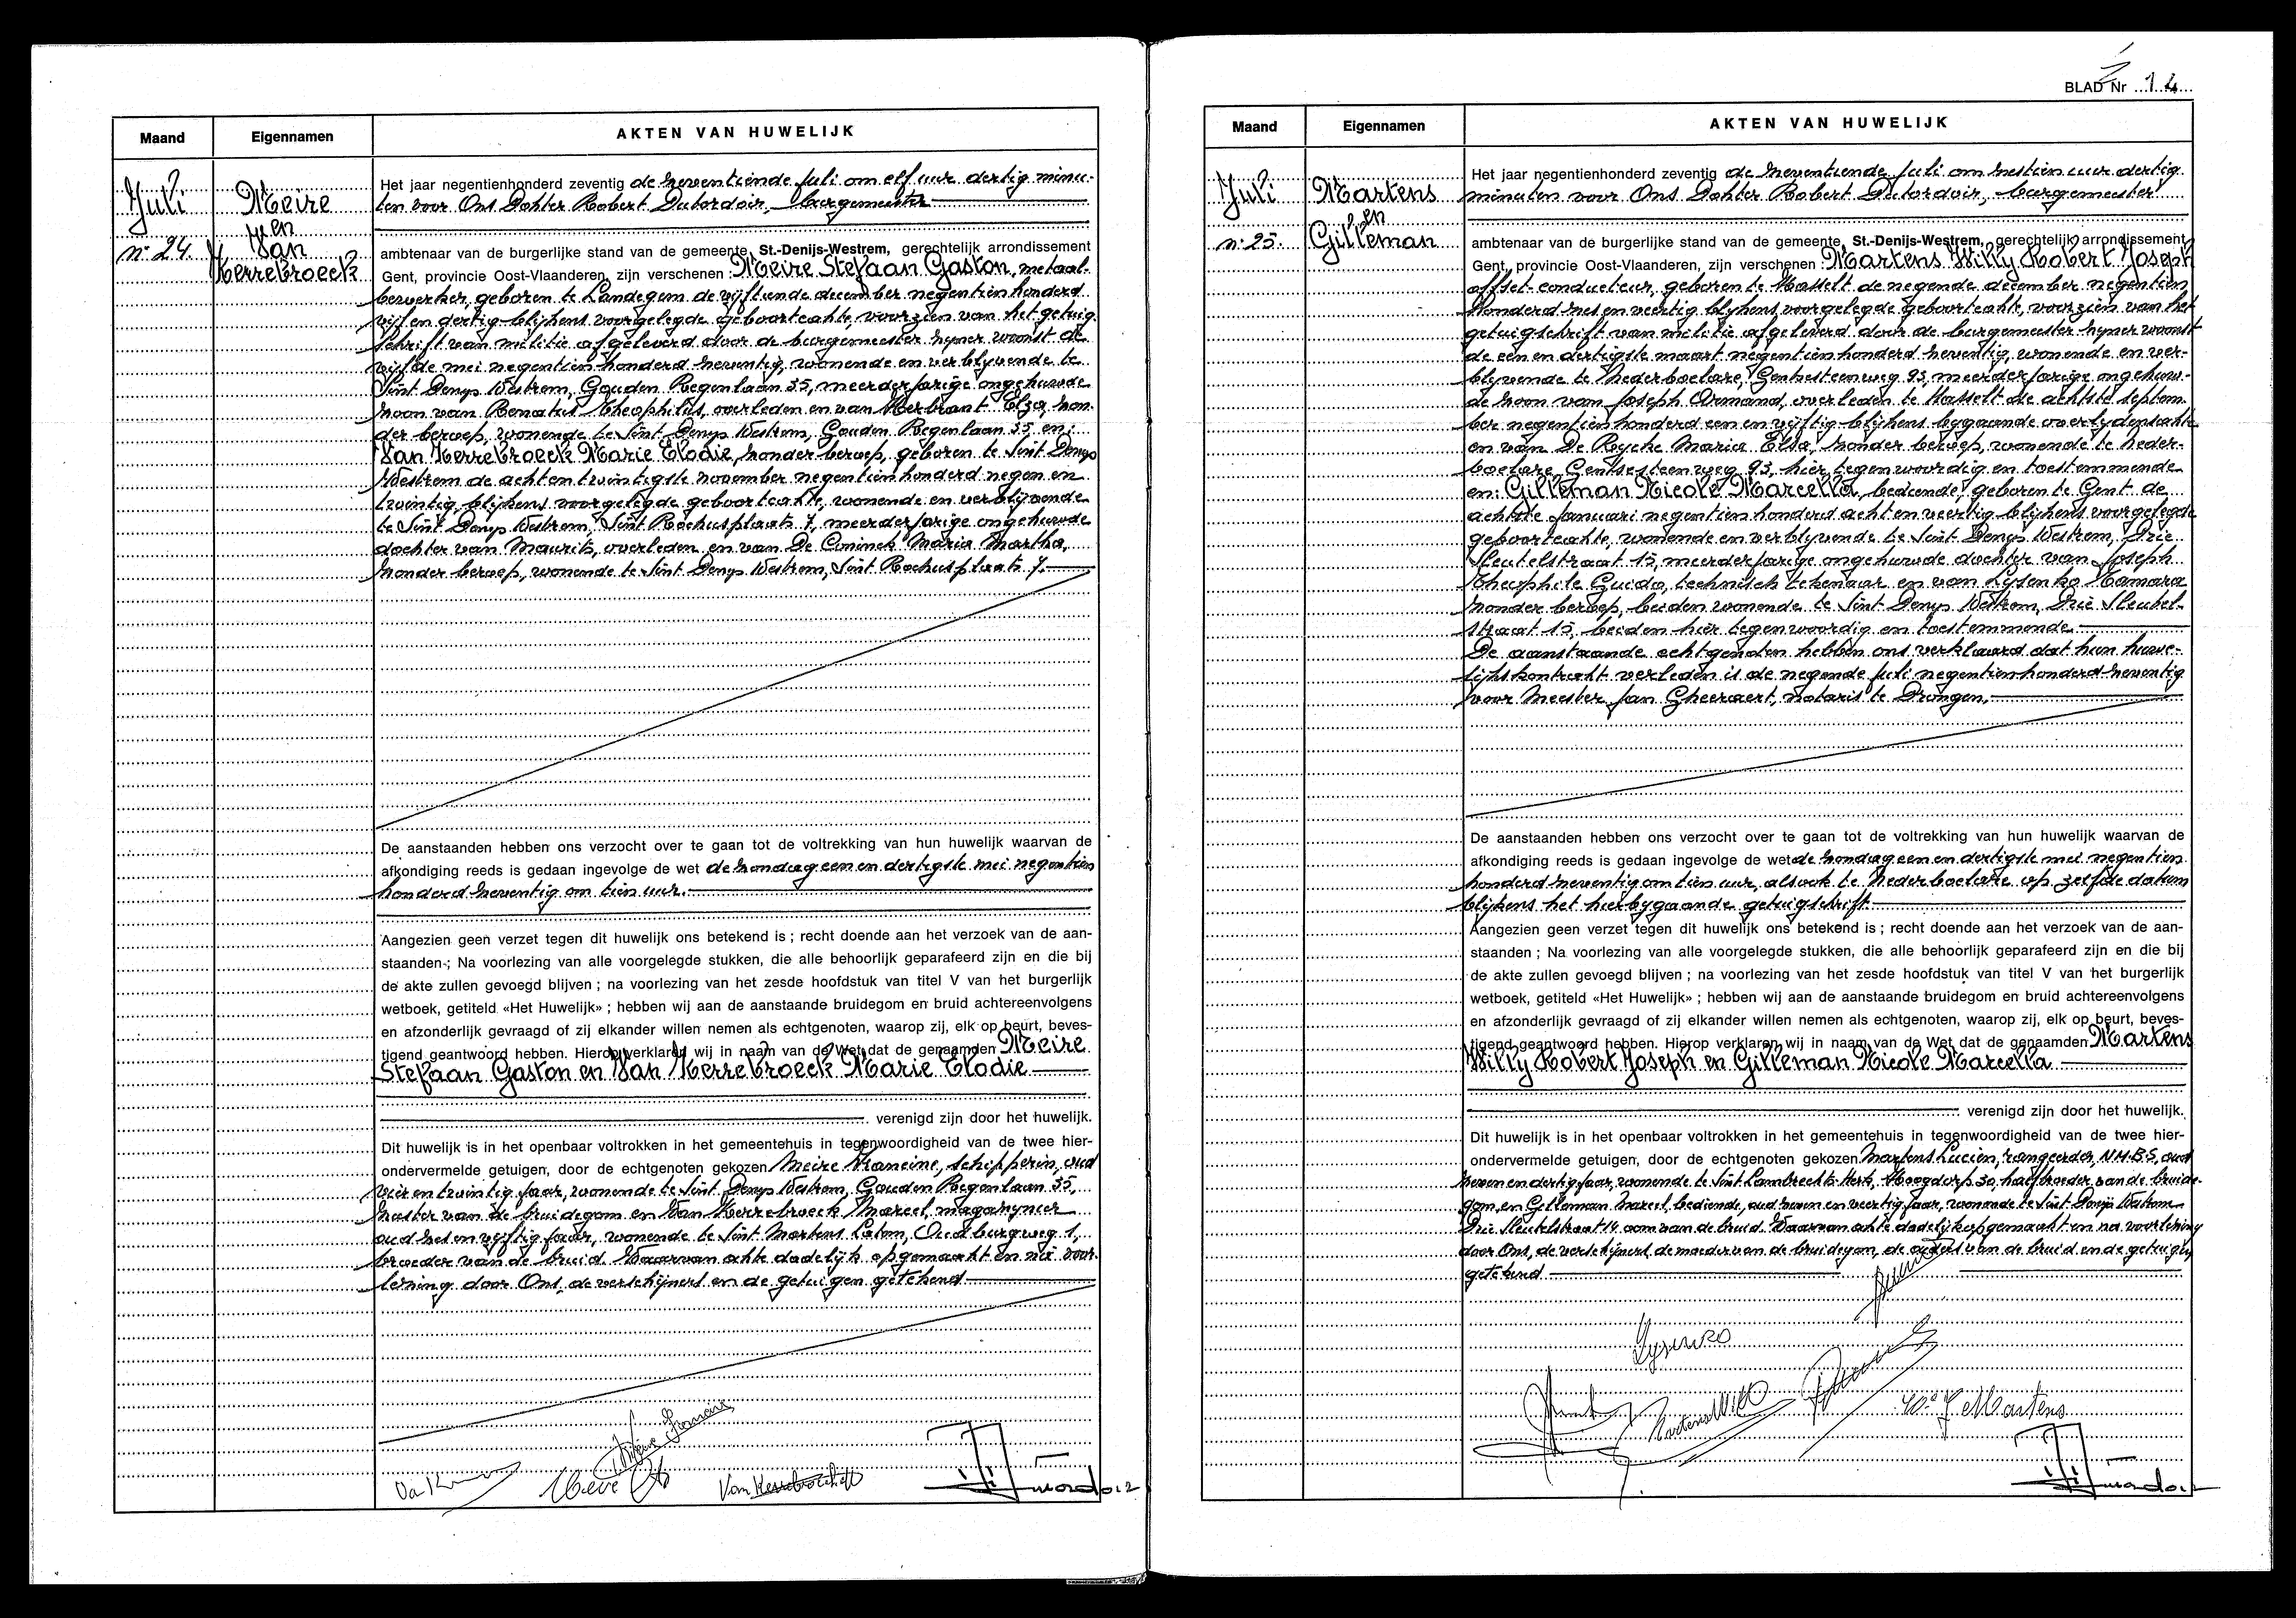 Maand
Eigennamen
AKTEN VAN HUWELIJK
Juli
n° 24.
Meire
en
Van
Kerrebroeck
Het jaar negentienhonderd zeventig de zeventiende Juli om elf uur dertig minu-
ten voor Ons Dokter Robert Dutordoir, burgemeester
ambtenaar van de burgerlijke stand van de gemeente, St.-Denijs-Westrem, gerechtelijk arrondissement
Gent, provincie Oost-Vlaanderen, zijn verschenen : Meire Stefaan Gaston, metaal-
bewerker, geboren te Landegem de vijftiende december negentienhonderd
vijf en dertig blijkens voorgelegde geboorteakte, voorzien van het getuig
schrift van militie afgeleverd door de burgemeester zijner woonst de
vijfde mei negentienhonderd zeventig, wonende en verblijvende te
Sint Denijs Westrem, Gouden Regenlaan 35, meerderjarige ongehuwde
zoon van Renatus Theophilus, overleden en van Herbrant Elza, zon
der beroep, wonende te Sint Denijs Westrem, Gouden Regenlaan 35 en:
Van Kerrebroeck Marie Elodie, zonder beroep, geboren te Sint Denijs
Westrem de achtentwintigste november negentienhonderd negen en
twintig blijkens voorgelegde geboorteakte, wonende en verblijvende
te Sint Denijs Westrem, Sint Rochusplaats 7, meerderjarige ongehuwde
dochter van Maurits, overleden en van De Coninck Maria Martha,
zonder beroep, wonende te Sint Denijs Westrem, Sint Rochusplaats 7.
De aanstaanden hebben ons verzocht over te gaan tot de voltrekking van hun huwelijk waarvan de
afkondiging reeds is gedaan ingevolge de wet de zondag een en dertigste mei negentien
honderd zeventig om tien uur.
Aangezien geen verzet tegen dit huwelijk ons betekend is ; recht doende aan het verzoek van de aan-
staanden ; Na voorlezing van alle voorgelegde stukken, die alle behoorlijk geparafeerd zijn en die bij
de akte zullen gevoegd blijven ; na voorlezing van het zesde hoofdstuk van titel V van het burgerlijk
wetboek, getiteld «Het Huwelijk» ; hebben wij aan de aanstaande bruidegom en bruid achtereenvolgens
en afzonderlijk gevraagd of zij elkander willen nemen als echtgenoten, waarop zij, elk op beurt, beves-
tigend geantwoord hebben. Hierop verklaren wij in naam van de Wet dat de genaamden Meire
Stefaan Gaston en Van Kerrebroeck Marie Elodie
verenigd zijn door het huwelijk.
Dit huwelijk is in het openbaar voltrokken in het gemeentehuis in tegenwoordigheid van de twee hier-
ondervermelde getuigen, door de echtgenoten gekozen Meire Francine, schipperin, oud
vier en twintig jaar, wonende te Sint Denijs Westrem, Gouden Regenlaan 35,
zuster van de bruidegom en Van Kerrebroeck Marcel, magazynier
oud zes en vyftig jaar, wonende te Sint Martens Latem, Oud burgweg 1,
broeder van de bruid. Waarvan akte dadelijk opgemaakt en na voor-
lezing door Ons, de verschijners en de getuigen getekend
BLAD Nr 14
Maand
Eigennamen
AKTEN VAN HUWELIJK
Juli
n° 25.
Martens
en
Gilleman
Het jaar negentienhonderd zeventig de zeventiende Juli om zestien uur dertig
minuten voor Ons Dokter Robert Dutordoir, burgemeester
ambtenaar van de burgerlijke stand van de gemeente, St.-Denijs-Westrem, gerechtelijk arrondissement
Gent, provincie Oost-Vlaanderen, zijn verschenen : Martens Willy Robert Joseph
offset-conducteur, geboren te Hasselt de negende december negentien
honderd zes en veertig blijkens voorgelegde geboorteakte, voorzien van het
getuigschrift van militie afgeleverd door de burgemeester zijner woonst
de een en dertigste maart negentienhonderd zeventig, wonende en ver-
blijvende te Nederboelare, Gentsesteenweg 93, meerderjarige ongehuw-
de zoon van Joseph Armand, overleden te Hasselt de achtste septem
ber negentienhonderd een en vyftig blijkens bygaande overlydensakte
en van De Rycke Maria Elsa, zonder beroep, wonende te Neder-
boelare, Gentsesteenweg 93, hier tegenwoordig en toestemmende
en: Gilleman Nicole Marcella, bediende, geboren te Gent de
achtste Januari negentienhonderd acht en veertig blijkens voorgelegde
geboorteakte, wonende en verblijvende te Sint Denijs Westrem, Drie
Sleutelstraat 15, meerderjarige ongehuwde dochter van Joseph
Theophile Guido, technisch tekenaar en van Lysenko Tamara
zonder beroep, beiden wonende te Sint Denijs Westrem, Drie Sleutel-
straat 15, beiden hier tegenwoordig en toestemmende
De aanstaande echtgenoten hebben ons verklaard dat hun huwe-
lijkskontrakt verleden is de negende Juli negentienhonderd zeventig
voor Meester Jan Gheeraert, notaris te Drongen.
De aanstaanden hebben ons verzocht over te gaan tot de voltrekking van hun huwelijk waarvan de
afkondiging reeds is gedaan ingevolge de wet de zondag een en dertigste mei negentien
honderd zeventig om tien uur, alsook te Nederboelare op zelfde datum
blijkens het hierbygaande getuigschrift.
Aangezien geen verzet tegen dit huwelijk ons betekend is ; recht doende aan het verzoek van de aan-
staanden ; Na voorlezing van alle voorgelegde stukken, die alle behoorlijk geparafeerd zijn en die bij
de akte zullen gevoegd blijven ; na voorlezing van het zesde hoofdstuk van titel V van het burgerlijk
wetboek, getiteld «Het Huwelijk» ; hebben wij aan de aanstaande bruidegom en bruid achtereenvolgens
en afzonderlijk gevraagd of zij elkander willen nemen als echtgenoten, waarop zij, elk op beurt, beves-
tigend geantwoord hebben. Hierop verklaren wij in naam van de Wet dat de genaamden Martens
Willy Robert Joseph en Gilleman Nicole Marcella
verenigd zijn door het huwelijk.
Dit huwelijk is in het openbaar voltrokken in het gemeentehuis in tegenwoordigheid van de twee hier-
ondervermelde getuigen, door de echtgenoten gekozen Martens Lucien, rangeerder, N.M.B.S, oud
zeven en dertig jaar, wonende te Sint Lambrechts Herk, Hoogdorp 30, halfbroeder van de bruide-
gom, en Gilleman Marcel, bediende, oud zeven en veertig jaar, wonende te Sint Denijs Westrem
Drie Sleutelstraat 14 oom van de bruid. Waarvan akte dadelijk opgemaakt en na voorlezing
door Ons, de verschijners, de moeder van de bruidegom, de ouders van de bruid en de getuigen
getekend
Lysenko
Martens Willy
We J Martens